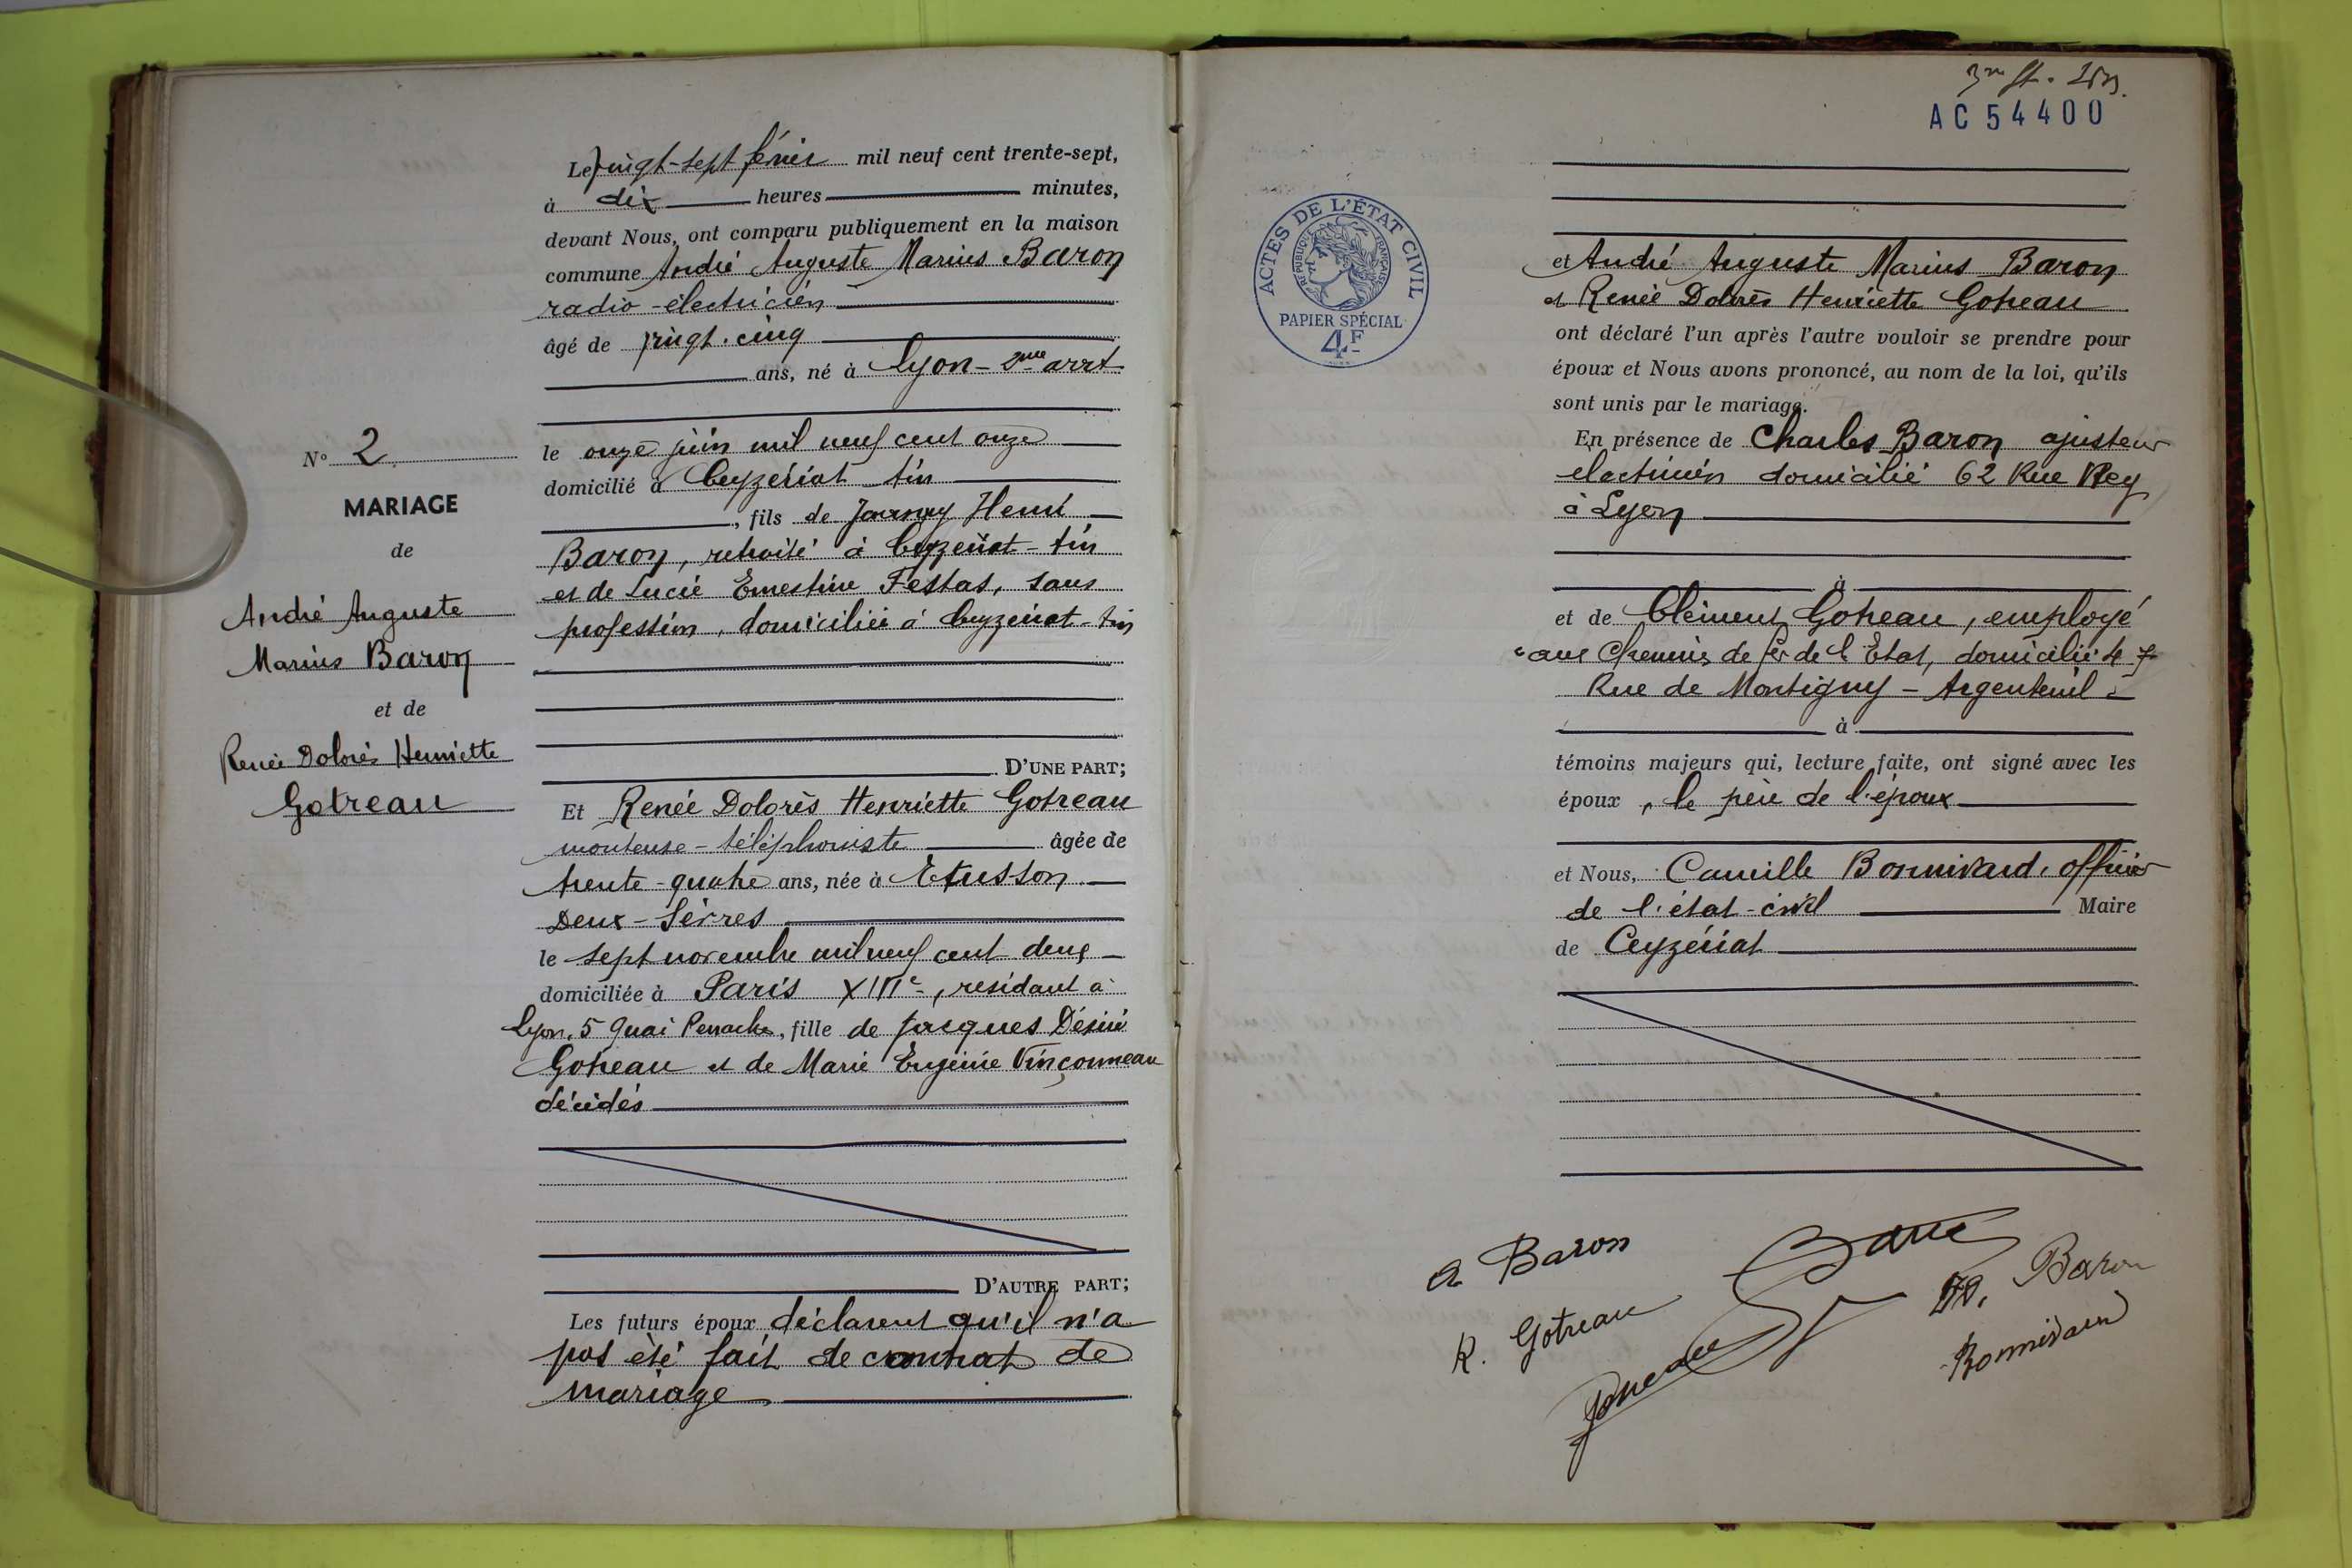 N° 2
MARIAGE
de
André Auguste
Marius Baron
et de
Renée Dolorès Henriette
Gotreau
Le vingt-sept février mil neuf cent trente-sept,
à dix heures minutes,
devant Nous, ont comparu publiquement en la maison
commune André Auguste Marius Baron
radio-électricien
âgé de vingt-cinq
ans, né à Lyon - 2me arrt
le onze juin mil neuf cent onze
domicilié à Ceyzériat Ain
, fils de Henri
Baron, retraité à Ceyzériat - Ain
et de Lucie Ernestine Festas, sans
profession, domiciliés à Ceyzériat - Ain
D'UNE PART;
Et Renée Dolorès Henriette Gotreau
monteuse-téléphoniste âgée de
trente-quatre ans, née à Etusson
Deux-Sèvres
le sept novembre mil neuf cent deux
domiciliée à Paris XIIIe, résidant à
Lyon, 5 Quai Perrache, fille de Jacques Désiré
Gotreau et de Marie Eugénie Vinçonneau
décédés
D'AUTRE PART;
Les futurs époux déclarent qu'il n'a
pas été fait de contrat de
mariage
AC 54400
ACTES DE L'ÉTAT CIVIL
RÉPUBLIQUE FRANÇAISE
PAPIER SPÉCIAL
4F
et André Auguste Marius Baron
et Renée Dolorès Henriette Gotreau
ont déclaré l'un après l'autre vouloir se prendre pour
époux et Nous avons prononcé, au nom de la loi, qu'ils
sont unis par le mariage.
En présence de Charles Baron ajusteur
électricien domicilié 62 Rue Rey
à Lyon
à
et de Clément Gotreau, employé
aux Chemins de fer de l'Etat, domicilié 47
Rue de Montigny - Argenteuil
à
témoins majeurs qui, lecture faite, ont signé avec les
époux, le père de l'époux
et Nous, Camille Bonnivard, officier
de l'état-civil Maire
de Ceyzériat
A Baron
R. Gotreau
Baron
Bonnivard